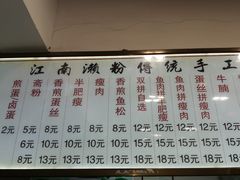 江南濑粉傳統手工
煎蛋卤蛋
斋粉
香煎蛋丝
半肥瘦
瘦肉
香煎鱼松
双拼自选
鱼肉拼半肥瘦
鱼肉拼瘦肉
蛋丝拼瘦肉
牛腩
2元 5元 8元 8元 8元 8元 12元 12元 12元 12元 12
6元 10元 10元 10元 10元 15元 15元 15元 15元 15
8元 13元 13元 13元 13元 18元 18元 18元 18元 18